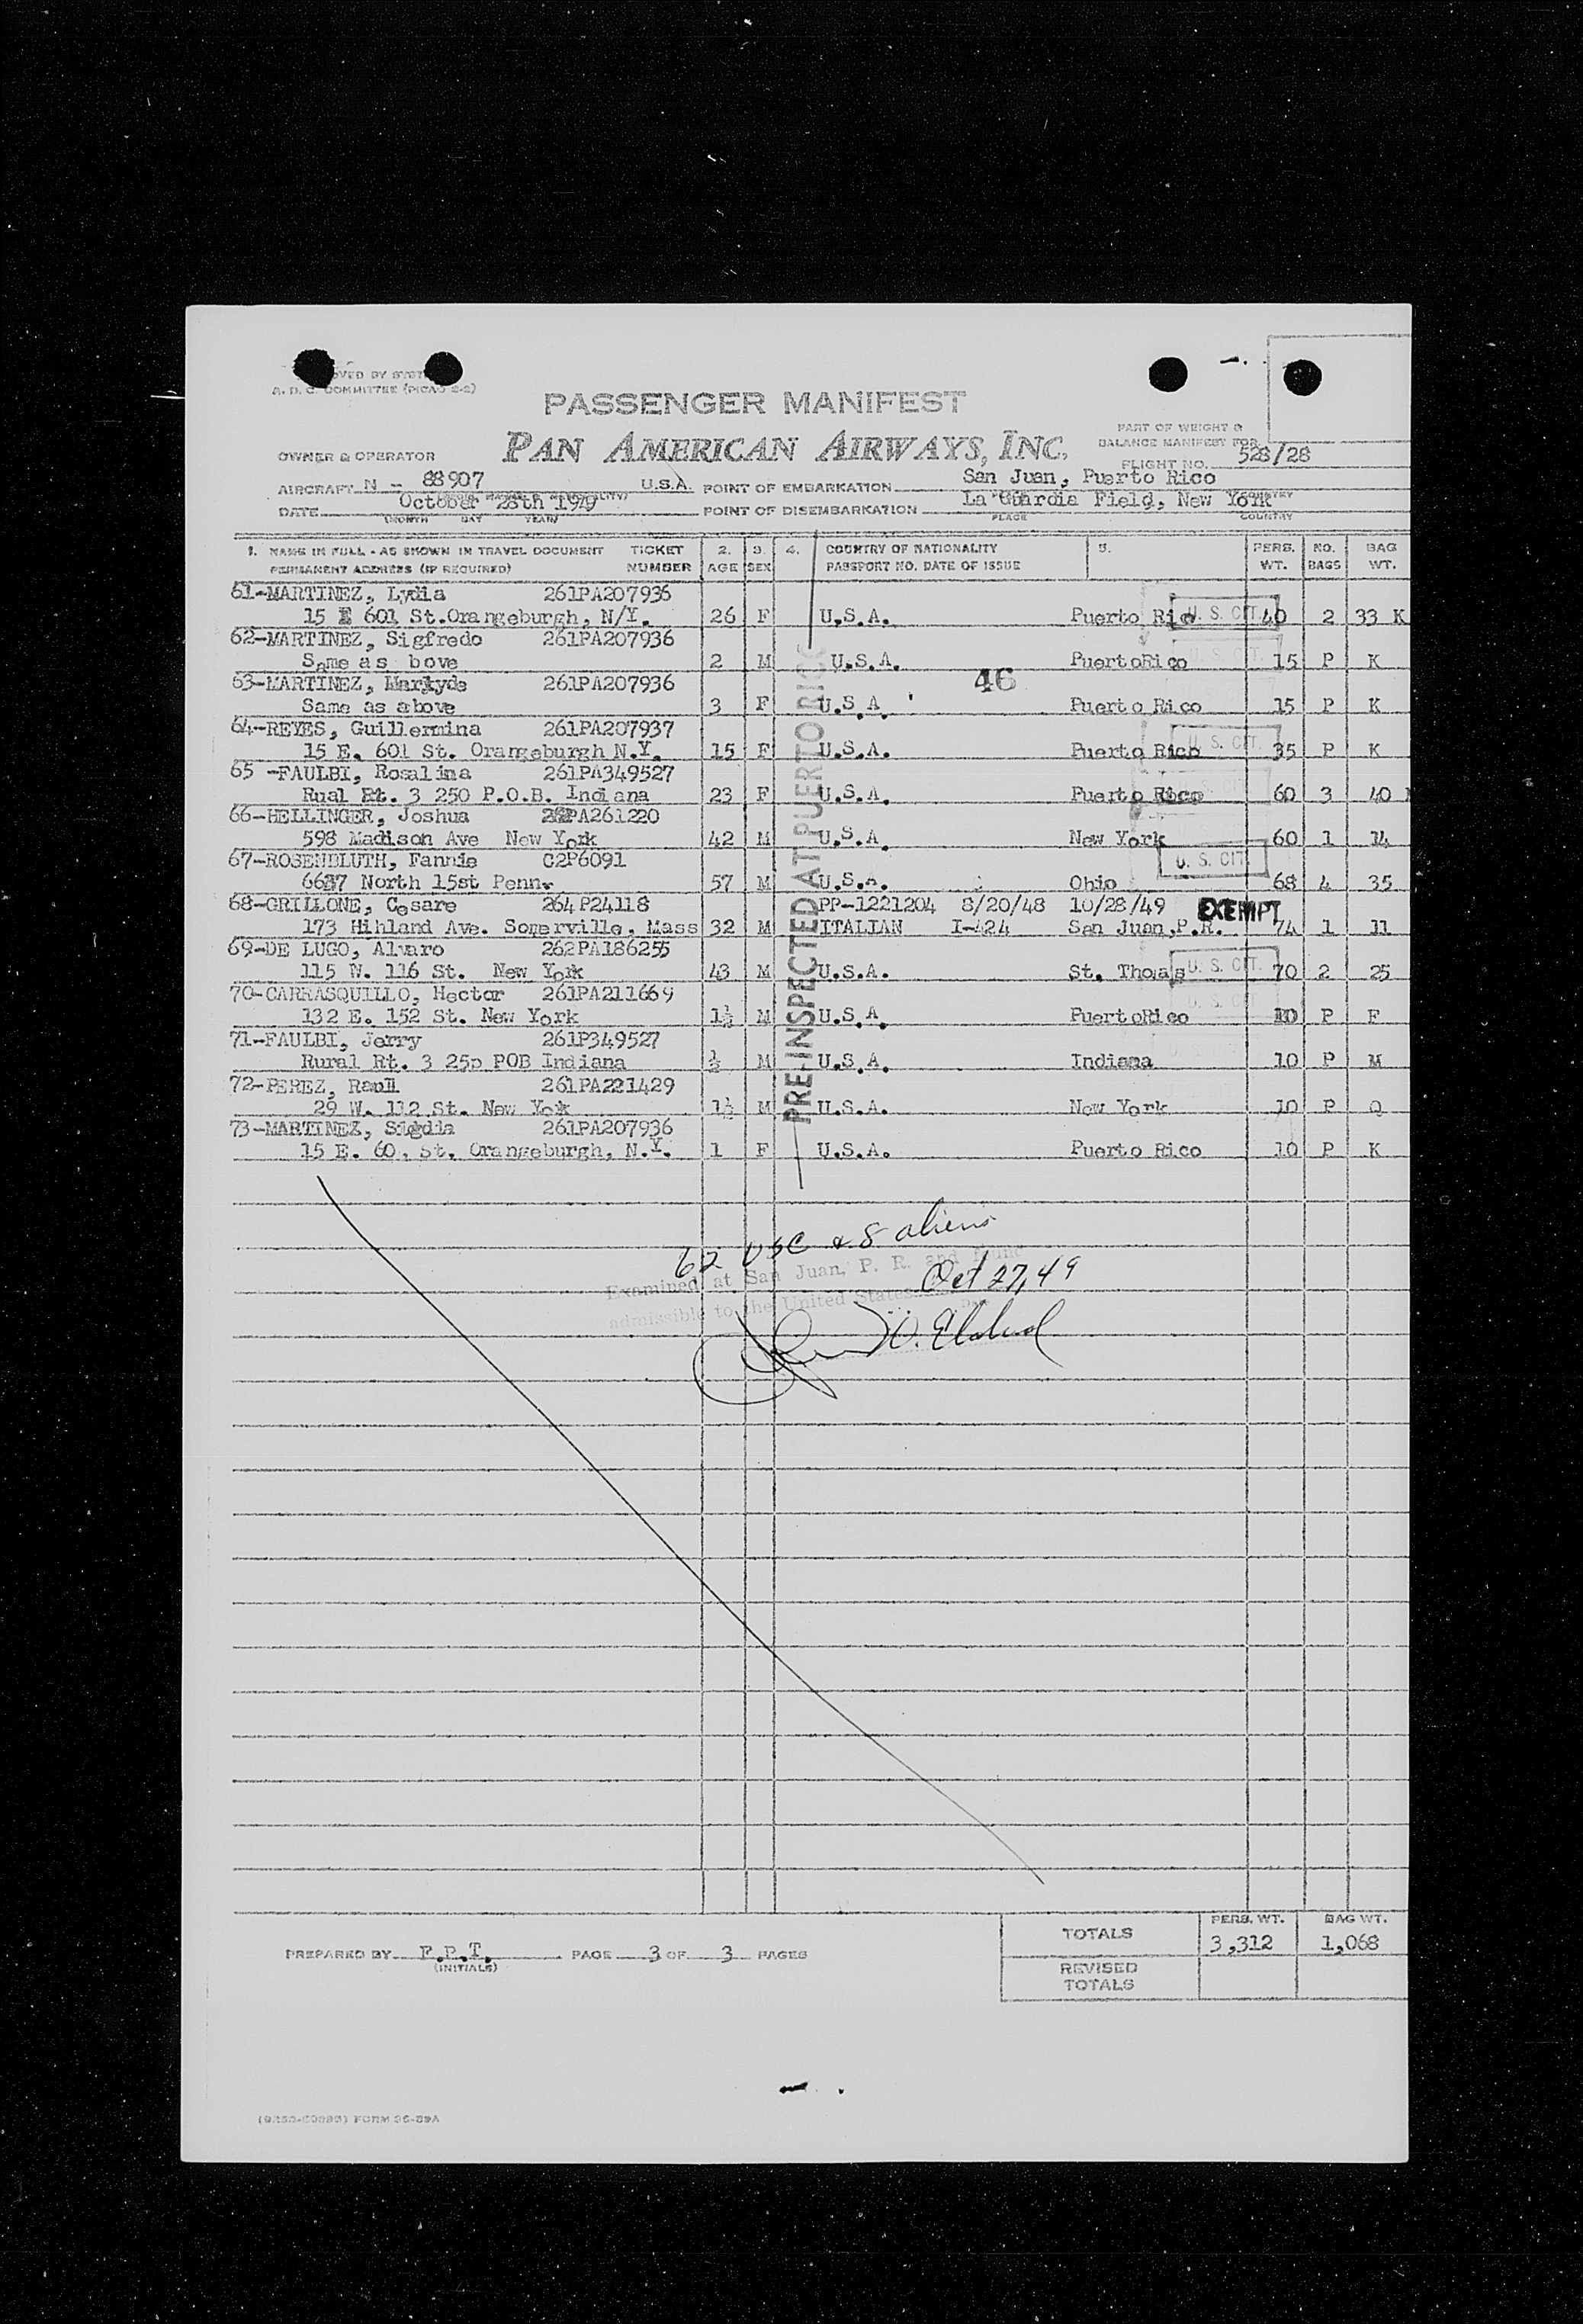 A. D. C. COMMITTEE (PICAO 2-2)
PASSENGER MANIFEST
PAN AMERICAN AIRWAYS, INC.
PART OF WEIGHT &
BALANCE MANIFEST FOR
OWNER & OPERATOR
FLIGHT NO. 528/28
AIRCRAFT N - 88907 U.S.A. POINT OF EMBARKATION San Juan, Puerto Rico
DATE October 28th 1949 POINT OF DISEMBARKATION La Guardia Field, New York
(MONTH DAY YEAR) PLACE COUNTRY
1. NAME IN FULL - AS SHOWN IN TRAVEL DOCUMENT TICKET 2. 3. 4. COUNTRY OF NATIONALITY 5. PERS. NO. BAG
PERMANENT ADDRESS (IF REQUIRED) NUMBER AGE SEX PASSPORT NO. DATE OF ISSUE WT. BAGS WT.
61-MARTINEZ, Lydia 261PA207936
15 E 601 St.Orangeburgh, N/Y. 26 F U.S.A. Puerto Rico U. S. CIT. 40 2 33 K
62-MARTINEZ, Sigfredo 261PA207936
Same as bove 2 M U.S.A. PuertoRico 15 P K
46
63-MARTINEZ, 261PA207936
Same as above 3 F U.S.A. Puerto Rico 15 P K
64-REYES, Guillermina 261PA207937
15 E. 601 St. Orangeburgh N.Y. 15 F U.S.A. Puerto Rico U. S. CIT. 35 P K
65 -FAULBI, Rosalina 261PA349527
Rual Rt. 3 250 P.O.B. Indiana 23 F U.S.A. Puerto Rico 60 3 40
66-HELLINGER, Joshua PA261220
598 Madison Ave New York 42 M U.S.A. New York 60 1 14
67-ROSENBLUTH, Fannie C2P6091
6637 North 15st Penn. 57 M U.S.A. Ohio U. S. CIT. 68 4 35
68-GRILLONE, Cesare 264P24118 PP-1221204 8/20/48 10/28/49 EXEMPT
173 Hihland Ave. Somerville, Mass 32 M ITALIAN I-424 San Juan,P.R. 74 1 11
69-DE LUGO, Alvaro 262PA186255
115 W. 116 St. New York 43 M U.S.A. St. Thomas U. S. CIT. 70 2 25
70-CARRASQUILLO, Hector 261PA211669
132 E. 152 St. New York 1½ M U.S.A. PuertoRico 10 P F
71-FAULBI, Jerry 261P349527
Rural Rt. 3 25p POB Indiana ½ M U.S.A. Indiana 10 P M
72-PEREZ, Raul 261PA221429
29 W. 112 St. New Yok 1½ M U.S.A. New York 10 P Q
73-MARTINEZ, Sigdia 261PA207936
15 E. 60, St. Orangeburgh, N.Y. 1 F U.S.A. Puerto Rico 10 P K
PRE-INSPECTED AT PUERTO RICO
62 USC & 8 aliens
Examined at San Juan, P. R. and found
Oct 27, 49
admissible to the United States
TOTALS PERS. WT. 3,312 BAG WT. 1,068
PREPARED BY F.P.T. PAGE 3 OF 3 PAGES
(INITIALS)
REVISED
TOTALS
FORM 36-89A